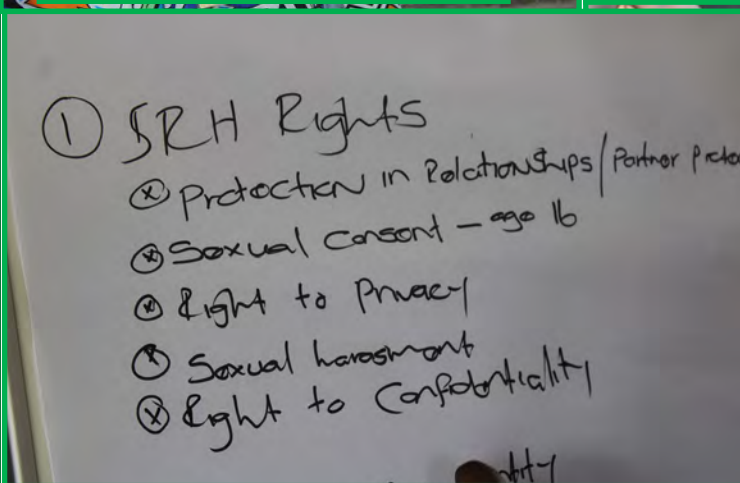 ① SRH Rights
ⓧ Protection in Relationships/Partner
ⓧ Sexual Consent – age 16
ⓧ Right to Privacy
ⓧ Sexual harasment
ⓧ Right to Confidentiality